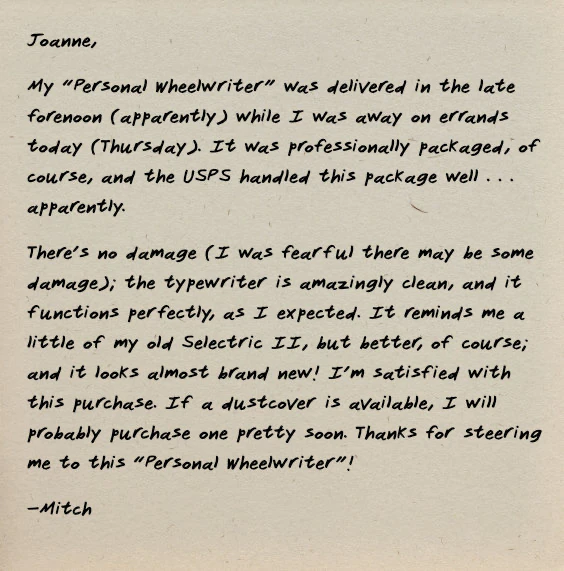 Joanne,
My “Personal Wheelwriter” was delivered in the late
forenoon (apparently) while I was away on errands
today (Thursday). It was professionally packaged, of
course, and the USPS handled this package well . . .
apparently.
There’s no damage (I was fearful there may be some
damage); the typewriter is amazingly clean, and it
functions perfectly, as I expected. It reminds me a
little of my old Selectric II, but better, of course;
and it looks almost brand new! I’m satisfied with
this purchase. If a dustcover is available, I will
probably purchase one pretty soon. Thanks for steering
me to this “Personal Wheelwriter”!
–Mitch